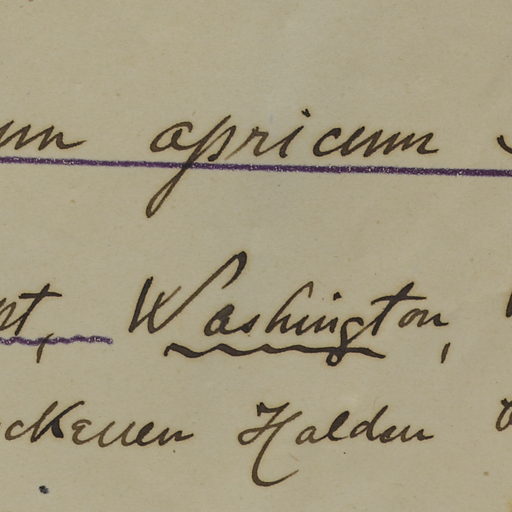 um apricum
pt, Washington,
ckenen Halden